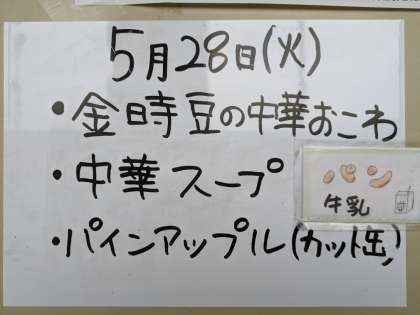 5月28日(火)
・金時豆の中華おこわ
・中華スープ
パン
牛乳
・パインアップル(カット缶)